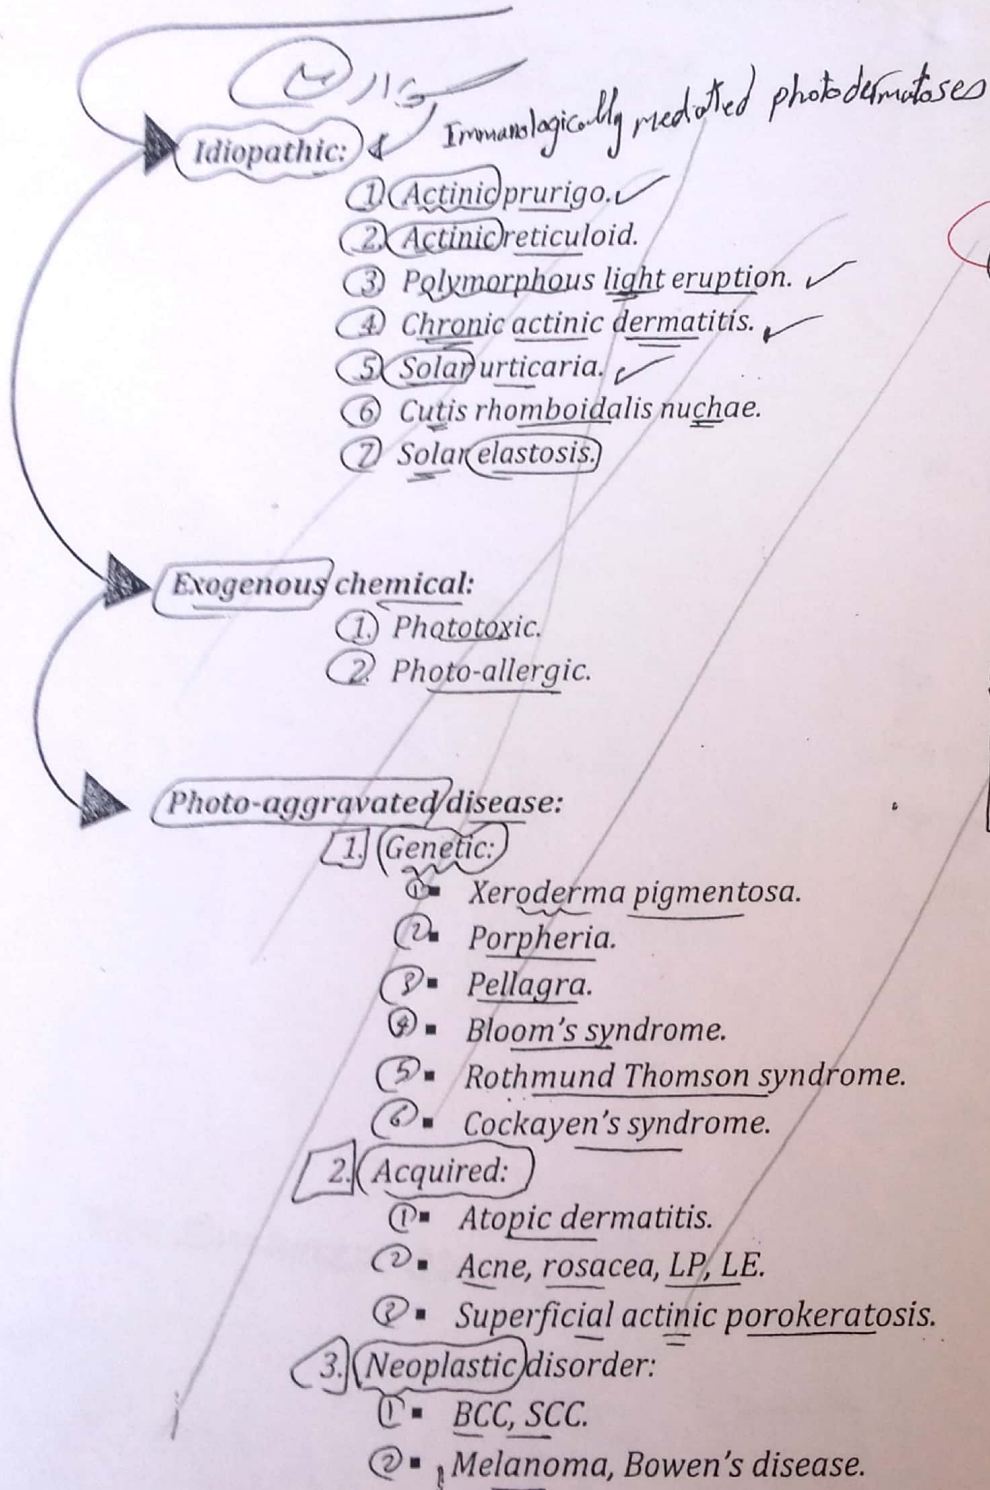 Immunologically mediatied photodermatoses
Idiopathic:
1. Actinic prurigo.
2. Actinic reticuloid.
3. Polymorphous light eruption.
4. Chronic actinic dermatitis.
5. Solar urticaria.
6. Cutis rhomboidalis nuchae.
7. Solar elastosis.
Exogenous chemical:
1. Phototoxic.
2. Photo-allergic.
Photo-aggravated disease:
1. Genetic:
① ▪ Xeroderma pigmentosa.
② ▪ Porpheria.
③ ▪ Pellagra.
④ ▪ Bloom's syndrome.
⑤ ▪ Rothmund Thomson syndrome.
⑥ ▪ Cockayen's syndrome.
2. Acquired:
① ▪ Atopic dermatitis.
② ▪ Acne, rosacea, LP, LE.
③ ▪ Superficial actinic porokeratosis.
3. Neoplastic disorder:
① ▪ BCC, SCC.
② ▪ Melanoma, Bowen's disease.